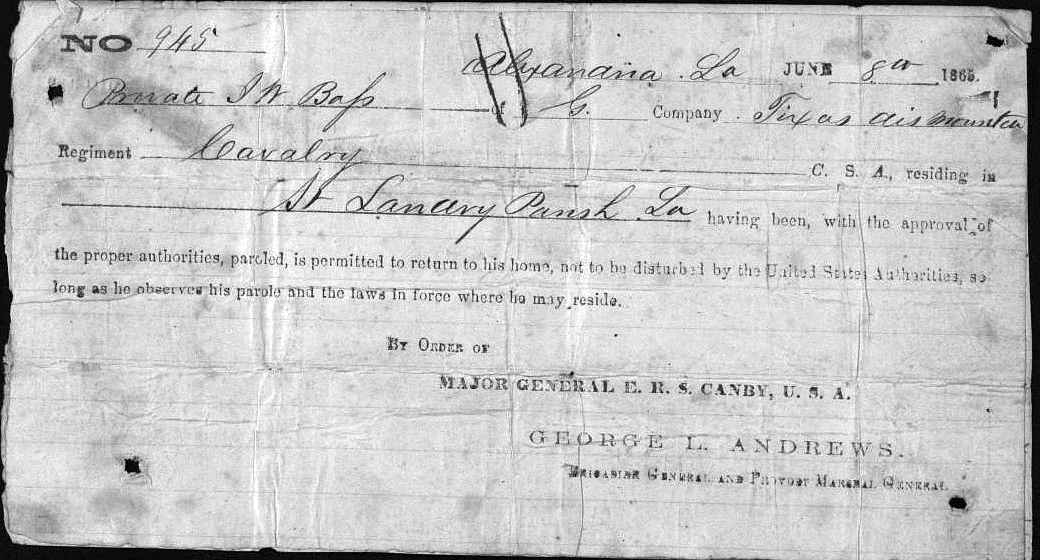 NO 945
Alexandria La JUNE 8th 1865.
Private J W Bass of G. Company Texas dismounted
Regiment Cavalry C. S. A., residing in
St Landry Parish La having been, with the approval of
the proper authorities, paroled, is permitted to return to his home, not to be disturbed by the United States Authorities, so
long as he observes his parole and the laws in force where he may reside.
BY ORDER OF
MAJOR GENERAL E. R. S. CANBY, U. S. A.
GEORGE L. ANDREWS.
BRIGADIER GENERAL AND PROVOST MARSHAL GENERAL.